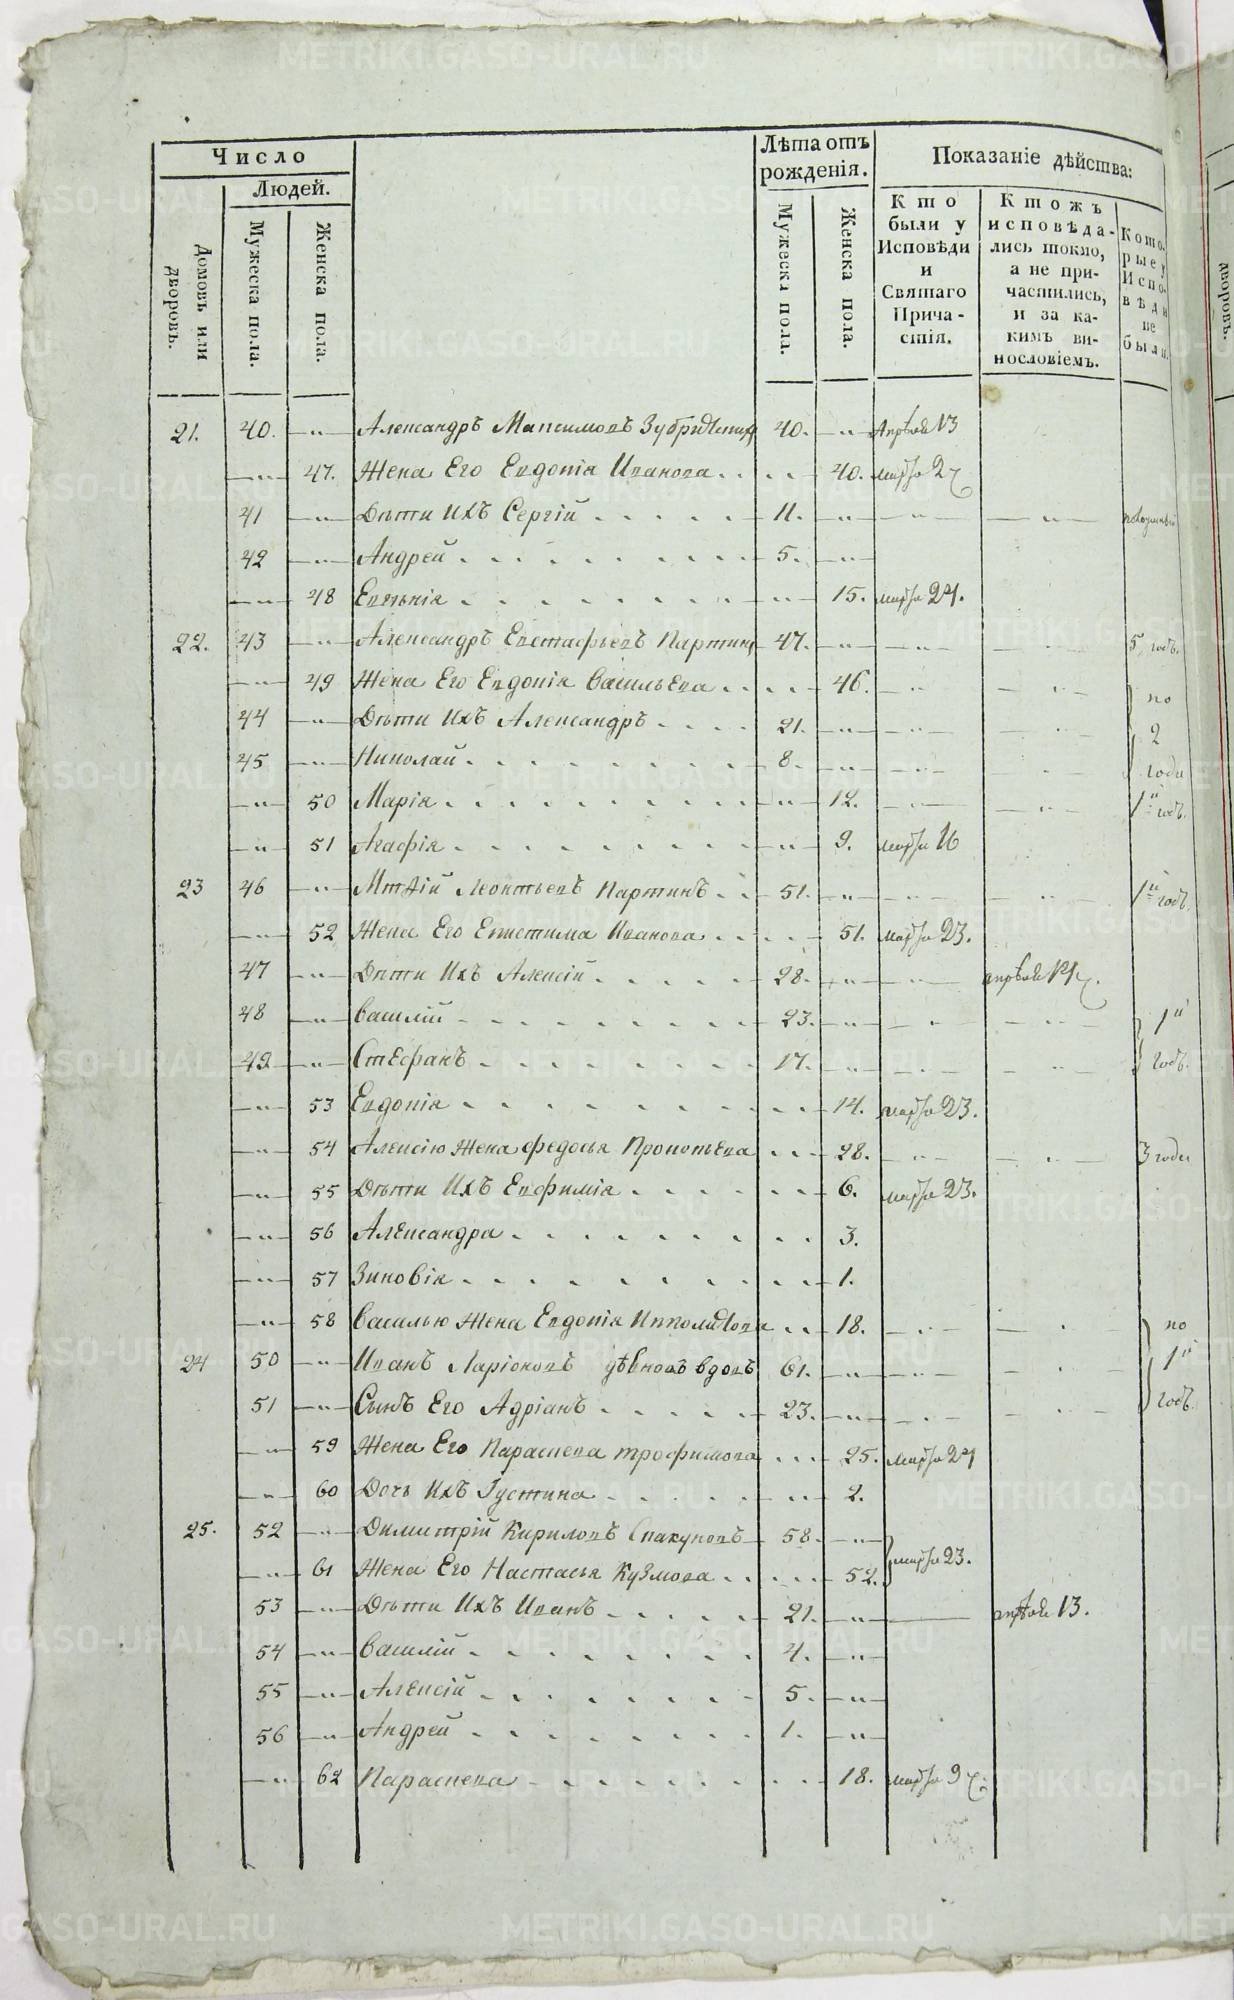 Число
Людей.
Домовъ или дворовъ.
Мужеска пола.
Женска пола.
Лѣта отъ рожденія.
Мужеска пола.
Женска пола.
Показаніе дѣйства:
Кто были у Исповѣди и Святаго Причастія.
Ктожъ исповѣдались токмо, а не причастились, и за какимъ винословіемъ.
Которые у Исповѣди не были.
21. 40. —"— Александръ Максимовъ 40. —"— Апрѣля 13
—"— 47. Жена Его Евдокія Иванова 40. марта
41 —"— Дѣти Ихъ Сергій 11. —"— —"— —"—
42 —"— Андрей 5. —"—
—"— 48 Евгѣнія —"— 15. марта 24.
22. 43 —"— Александръ Евстафьевъ Партинъ 47. —"— —"— —"— 5 годъ.
—"— 49 Жена Его Евдокія Васильева 46. —"— —"— по
44 —"— Дѣти Ихъ Александръ 21. —"— —"— —"— 2
45 —"— Николай 8. —"— —"— —"— года
—"— 50 Марія —"— 12. —"— —"— 1й годъ.
—"— 51 Агафія —"— 9. марта 16
23 46 —"— Леонтьевъ Партинъ 51. —"— —"— —"— 1й годъ.
—"— 52 Жена Его Епистима Иванова 51. марта 23.
47 —"— Дѣти Ихъ Алексій 28. —"— —"— апрѣля
48 —"— Василій 23. —"— —"— —"— 1й
49 —"— Стефанъ 17. —"— —"— —"— годъ.
—"— 53 Евдокія 14. марта 23.
—"— 54 Алексію Жена Федосья Прокопьева 28. —"— —"— 3 года
—"— 55 Дѣти Ихъ Евфимія 6. марта 23.
—"— 56 Александра 3.
—"— 57 Зиновія 1.
—"— 58 Василью Жена Евдокія 18. —"— —"— по
24 50 —"— Иванъ Ларіоновъ вдовъ 61. —"— —"— —"— 1й
51 —"— Сынъ Его Адріанъ 23. —"— —"— —"— годъ.
—"— 59 Жена Его Параскева Трофимова 25. марта 24
—"— 60 Дочь Ихъ Густина 2.
25. 52 —"— Димитрій Кириловъ 58. —"—
—"— 61 Жена Его Настасья Кузмова 52. марта 23.
53 —"— Дѣти Ихъ Иванъ 21. —"— — апрѣля 13.
54 —"— Василій 4. —"—
55 —"— Алексій 5. —"—
56 —"— Андрей 1. —"—
—"— 62 Параскева 18. марта
METRIKI.GASO-URAL.RU